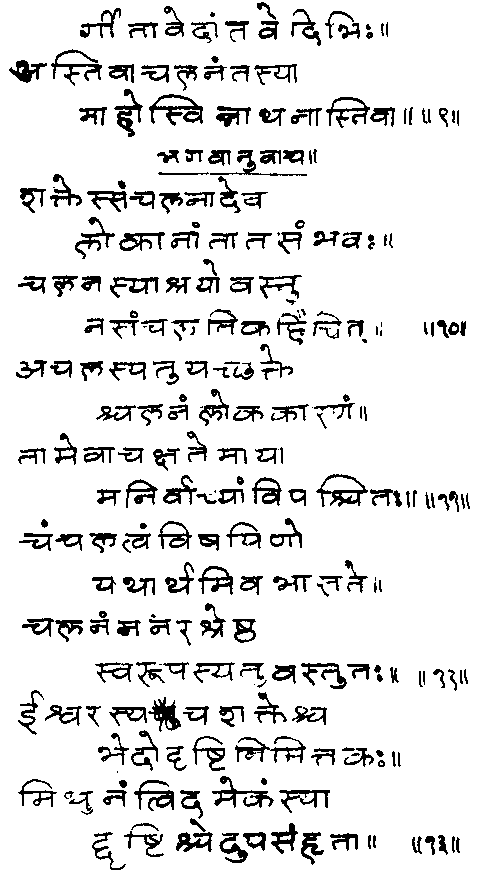 र्गीतावेदांतवेदिभिः॥
अस्तिवाचलनंतस्या
माहोस्विन्नाथनास्तिवा॥॥९॥
भगवानुवाच॥
शक्तेस्संचलनादेव
लोकानांतातसंभवः॥
चलनस्याश्रयोवस्तु
नसंचलतिकर्हिचित्॥ ॥१०॥
अचलस्यतुयच्छक्ते
श्चलनंलोककारणं॥
तामेवाचक्षतेमाया
मनिर्वाच्यांविपश्चितः॥॥११॥
चंचलत्वंविषयिणो
यथार्थमिवभासते॥
चलनंननरश्रेष्ठ
स्वरूपस्यतुवस्तुतः॥ ॥१२॥
ईश्वरस्यचशक्तेश्च
भेदोदृष्टिनिमित्तकः॥
मिथुनंत्विदमेकंस्या
द्दृष्टिश्चेदुपसंहृता॥ ॥१३॥